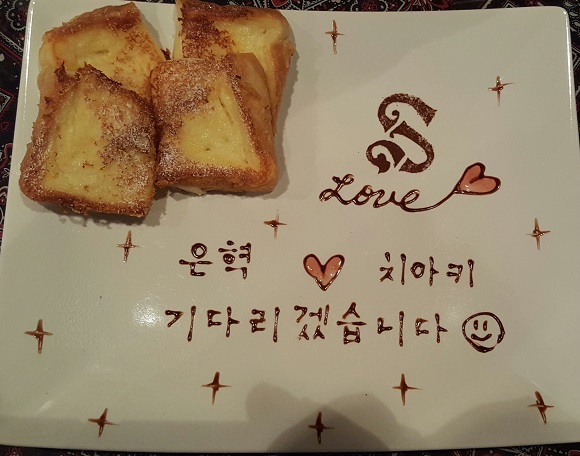 S
Love
은혁 ♥ 치아키
기다리겠습니다